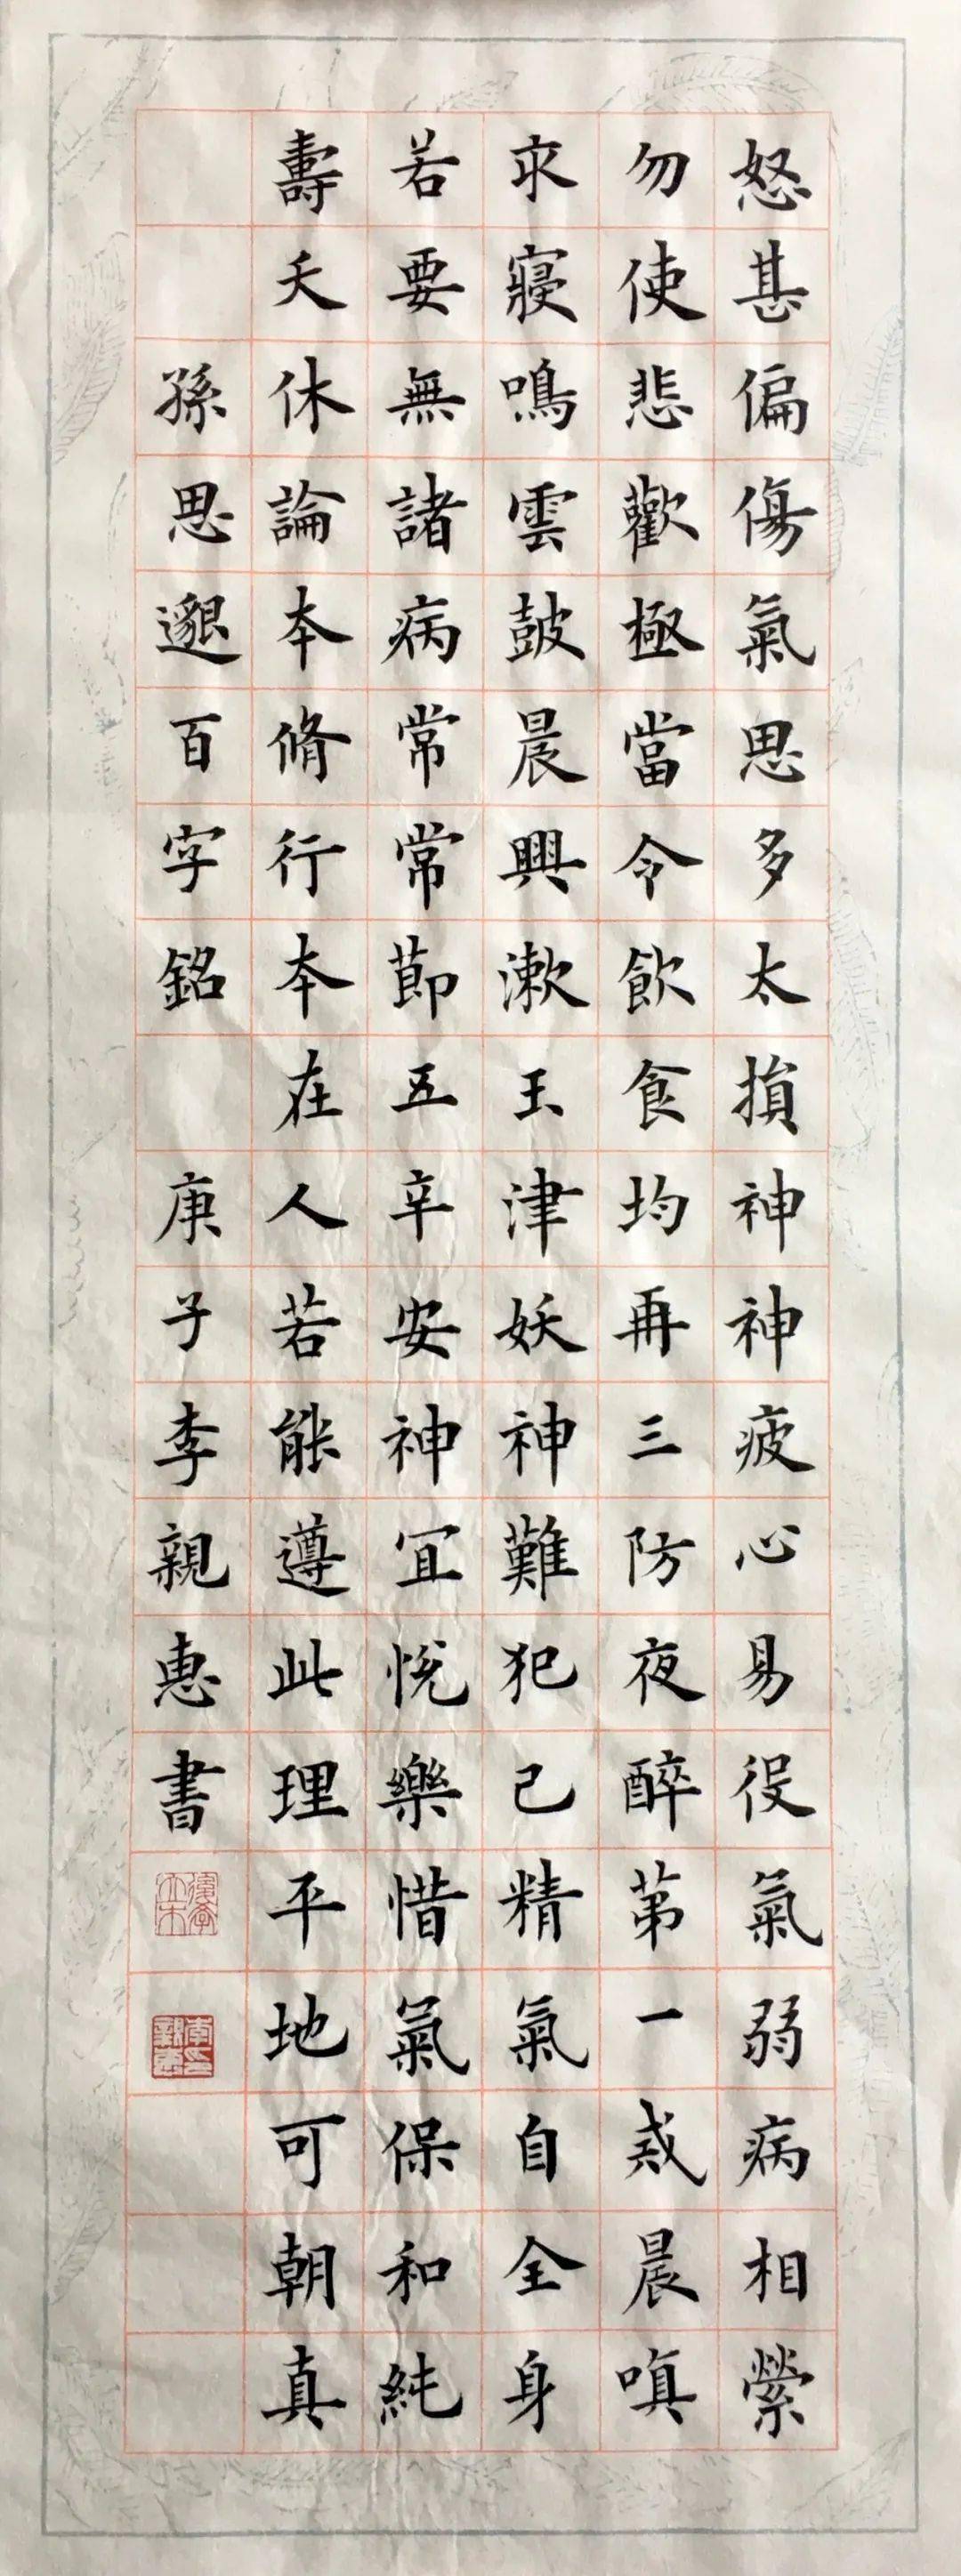 怒甚偏傷氣思多太損神神疲心易役氣弱病相縈
勿使悲歡極當令飲食均再三防夜醉第一戒晨嗔
亥寢鳴雲鼓晨興漱玉津妖神難犯己精氣自全身
若要無諸病常常節五辛安神宜悅樂惜氣保和純
壽夭休論本脩行本在人若能遵此理平地可朝真
孫思邈百字銘 庚子李親惠書